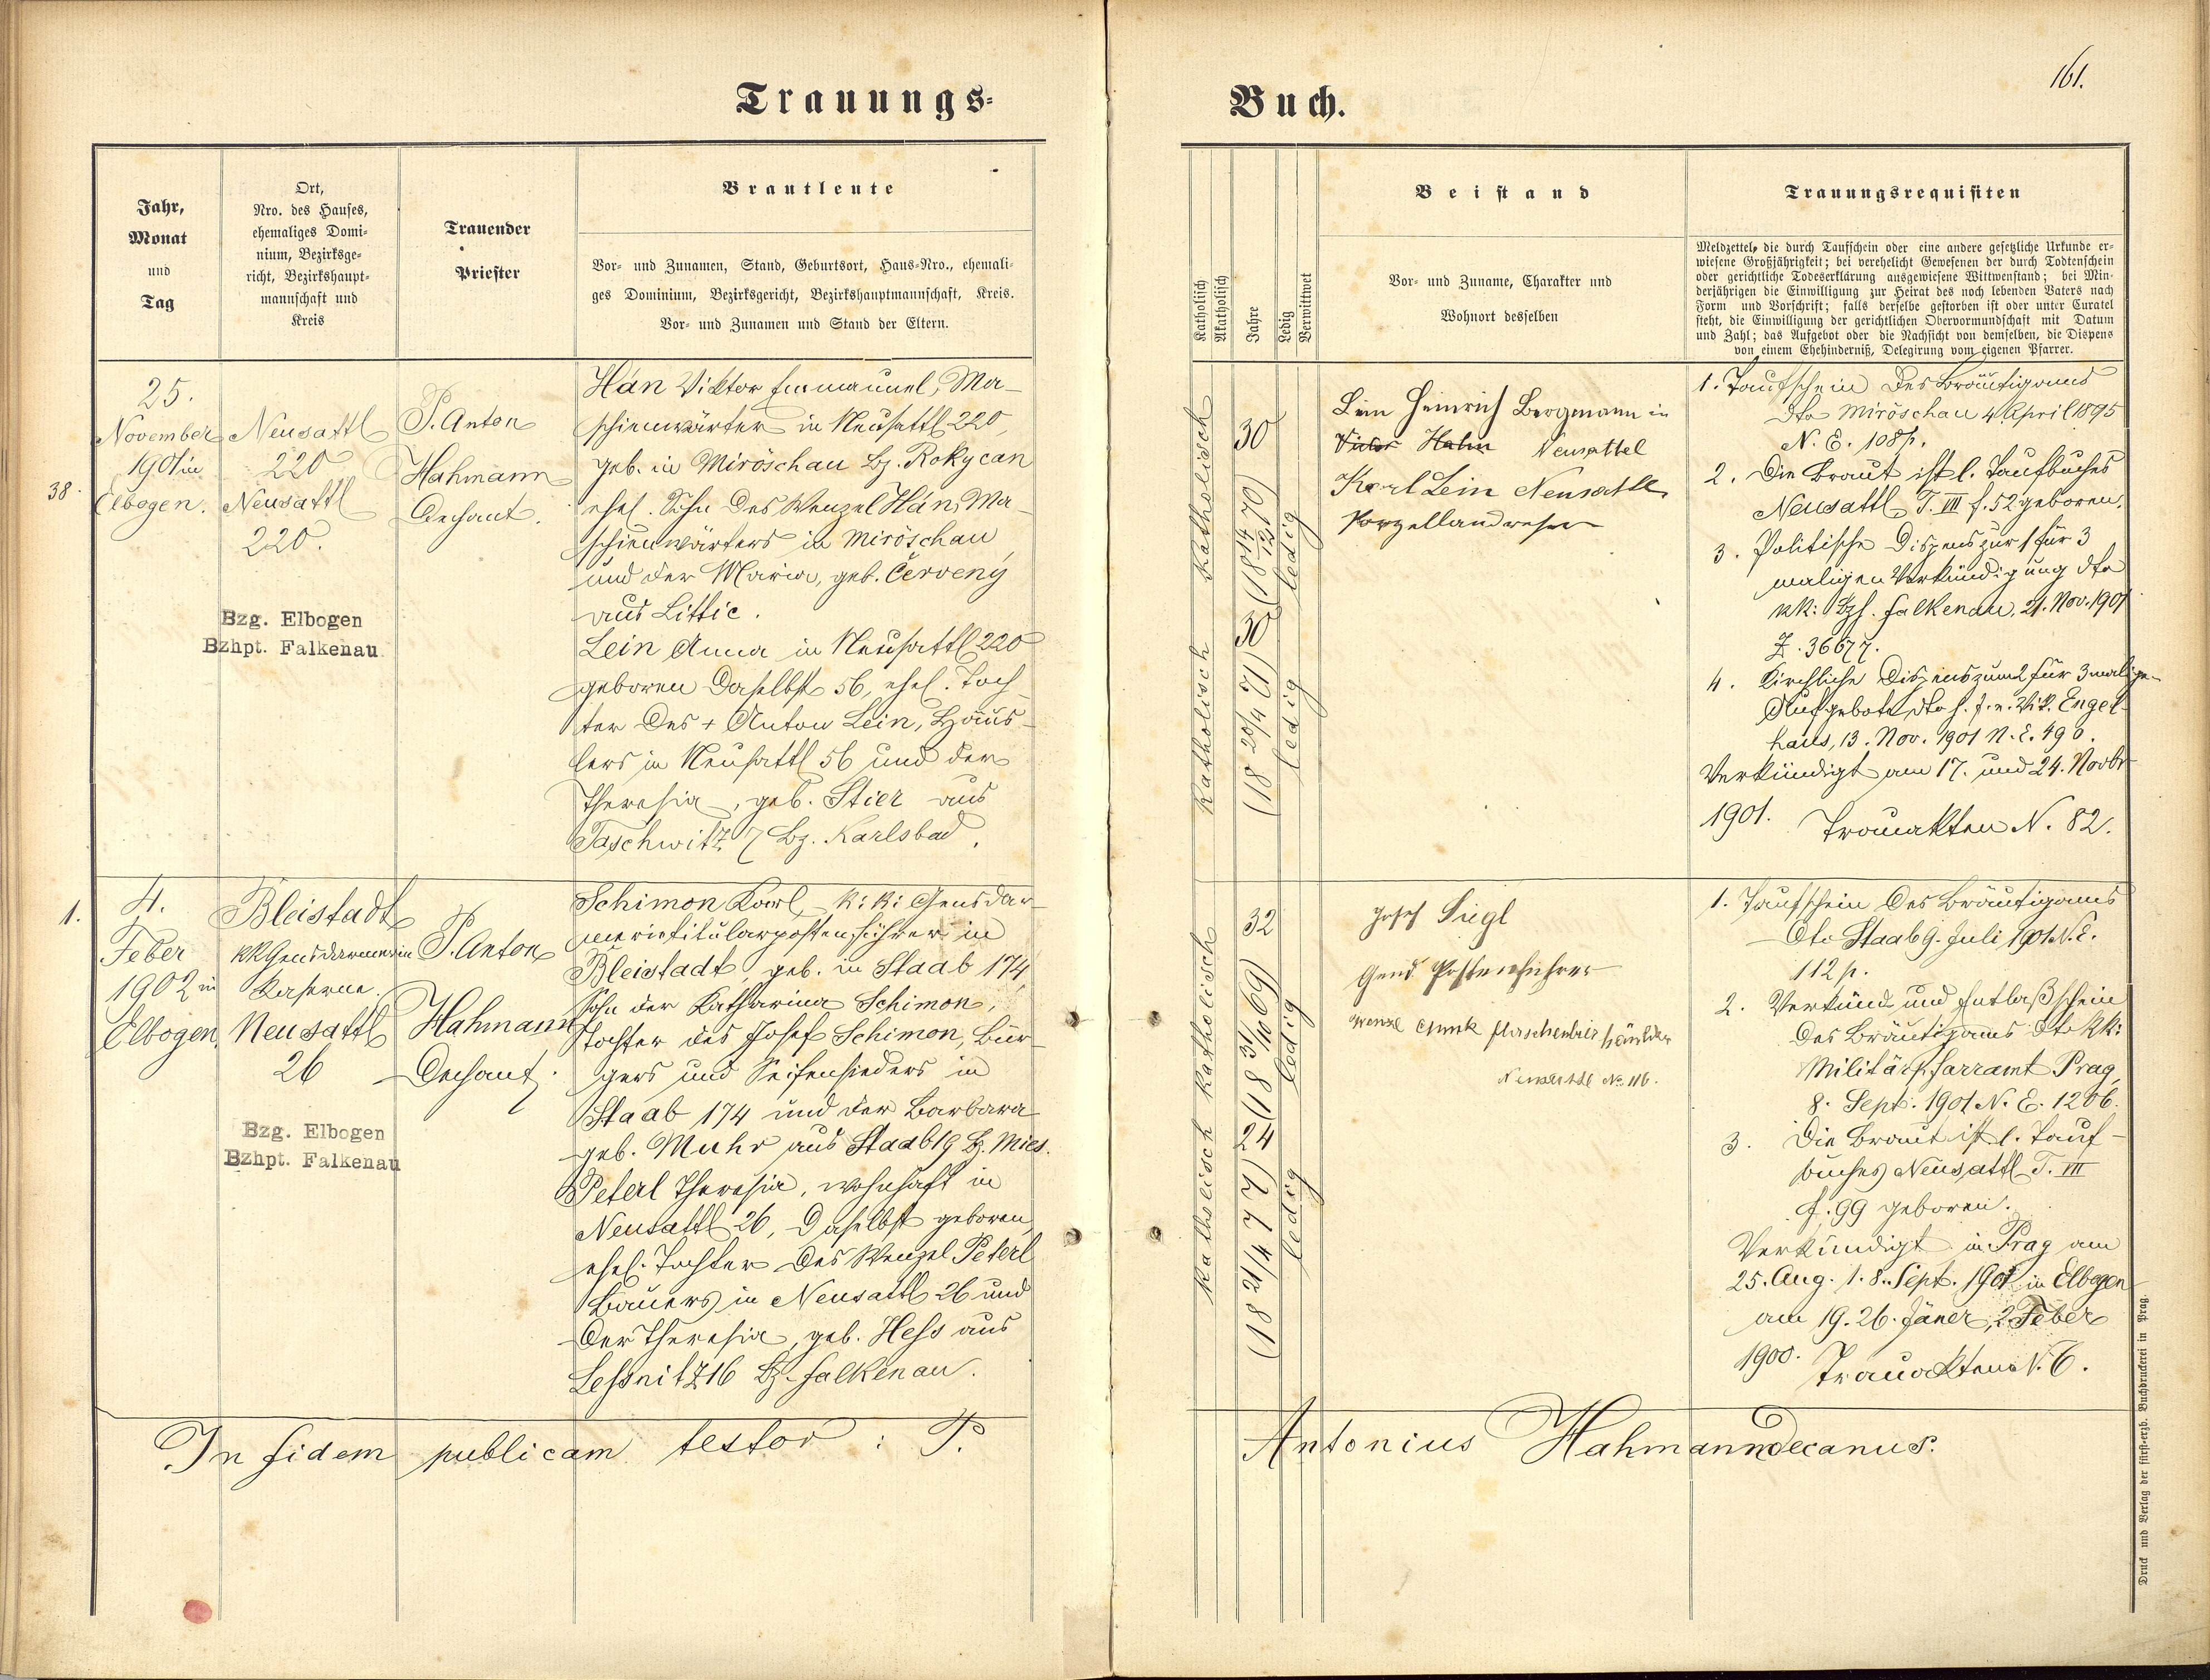 Trauungs=
Buch.
161.
Jahr,
Monat
und
Tag
Ort,
Nro. des Hauses,
ehemaliges Domi=
nium, Bezirksge=
richt, Bezirkshaupt=
mannschaft und
Kreis
Trauender
Priester
Brautleute
Vor= und Zunamen, Stand, Geburtsort, Haus=Nro., ehemali=
ges Dominium, Bezirksgericht, Bezirkshauptmannschaft, Kreis.
Vor= und Zunamen und Stand der Eltern.
Katholisch
Akatholisch
Jahre
Ledig
Verwittwet
Beistand
Vor= und Zuname, Charakter und
Wohnort desselben
Trauungsrequisiten
Meldzettel, die durch Taufschein oder eine andere gesetzliche Urkunde er=
wiesene Großjährigkeit; bei verehelicht Gewesenen der durch Todtenschein
oder gerichtliche Todeserklärung ausgewiesene Wittwenstand; bei Min=
derjährigen die Einwilligung zur Heirat des noch lebenden Vaters nach
Form und Vorschrift; falls derselbe gestorben ist oder unter Curatel
steht, die Einwilligung der gerichtlichen Obervormundschaft mit Datum
und Zahl; das Aufgebot oder die Nachsicht von demselben, die Dispens
von einem Ehehinderniß, Delegirung vom eigenen Pfarrer.
38.
25.
November
1901 in
Elbogen.
Neusattl
220
Neusattl
220.
Bzg. Elbogen
Bzhpt. Falkenau
P. Anton
Hahmann
Dechant.
Hán Viktor Emmanuel, Ma-
schienwärter in Neusattl 220,
geb. in Miröschau Bz. Rokycan
ehel. Sohn des Wenzel Hán, Ma-
schienwärters in Miröschau,
und der Maria, geb. Červeny
aus Littic.
Lein Anna in Neusattl 220
geboren daselbst 56, ehel. Toch-
ter des + Anton Lein, Häus-
lers in Neusattl 56 und der
Theresia, geb. Stier aus
Taschwitz 7 Bz. Karlsbad.
Katholisch
30
(18 14/12 70)
ledig
Katholisch
30
(18 20/4 71)
ledig
Lein Heinrich Bergmann in
Viktor Hahn Neusattel
Karl Lein Neusattl
1. Taufschein des Bräutigams
dto Miröschau 4. April 1895
N. E. 108 p.
2. Die Braut ist l. Taufbuches
Neusattl T. VII f. 52 geboren.
3. Politische Dispens zur 1 für 3
maligen Verkündigung dto
kk: Bzh. Falkenau, 21. Nov. 1901
Z. 36677.
4. Kirchliche Dispens zum 2 für 3malige-
Aufgebote dto h. f. e. Vik. Engel-
haus, 13. Nov. 1901 N. E. 490.
Verkündigt am 17. und 24. Novbr
1901. Trauakten N. 82.
1.
4.
Feber
1902 in
Elbogen.
Bleistadt
kk Gensdarmerie
Kaserne.
Neusattl
26
Bzg. Elbogen
Bzhpt. Falkenau
P. Anton
Hahmann
Dechant.
Schimon Karl, k: k: Gensdar-
merietitularpostenführer in
Bleistadt, geb. in Staab 174,
Sohn der Katharina Schimon,
Tochter des Josef Schimon, Bür-
gers und Seifensieders in
Staab 174 und der Barbara
geb. Muhr aus Staab 19 Bz. Mies.
Peterl Theresia, wohnhaft in
Neusattl 26, daselbst geboren,
ehel. Tochter des Wenzel Peterl
Bauers in Neusattl 26 und
der Theresia, geb. Hess aus
Lessnitz 16 Bz. Falkenau.
Katholisch
32
(18 31/10 69)
ledig
Katholisch
24
(18 21/4 77)
ledig
Josef Siegl
Gend. Postenführer
Neusattl No. 116.
1. Taufschein des Bräutigams
dto Staab 9. Juli 1901 N. E.
112 p.
2. Verkünd und Entlaßschein
des Bräutigams dto kk:
Militärpfarramt Prag,
8. Sept. 1901 N. E. 1206.
3. Die Braut ist l. Tauf-
buches Neusattl T. VII
f. 99 geboren.
Verkündigt in Prag am
25. Aug. 1. 8. Sept. 1901 in Elbogen
am 19. 26. Jäner, 2. Feber
1900. Trauakten N. 6.
In fidem publicam testor: P.
Antonius Hahmann decanus.
Druck und Verlag der fürst-erzb. Buchdruckerei in Prag.